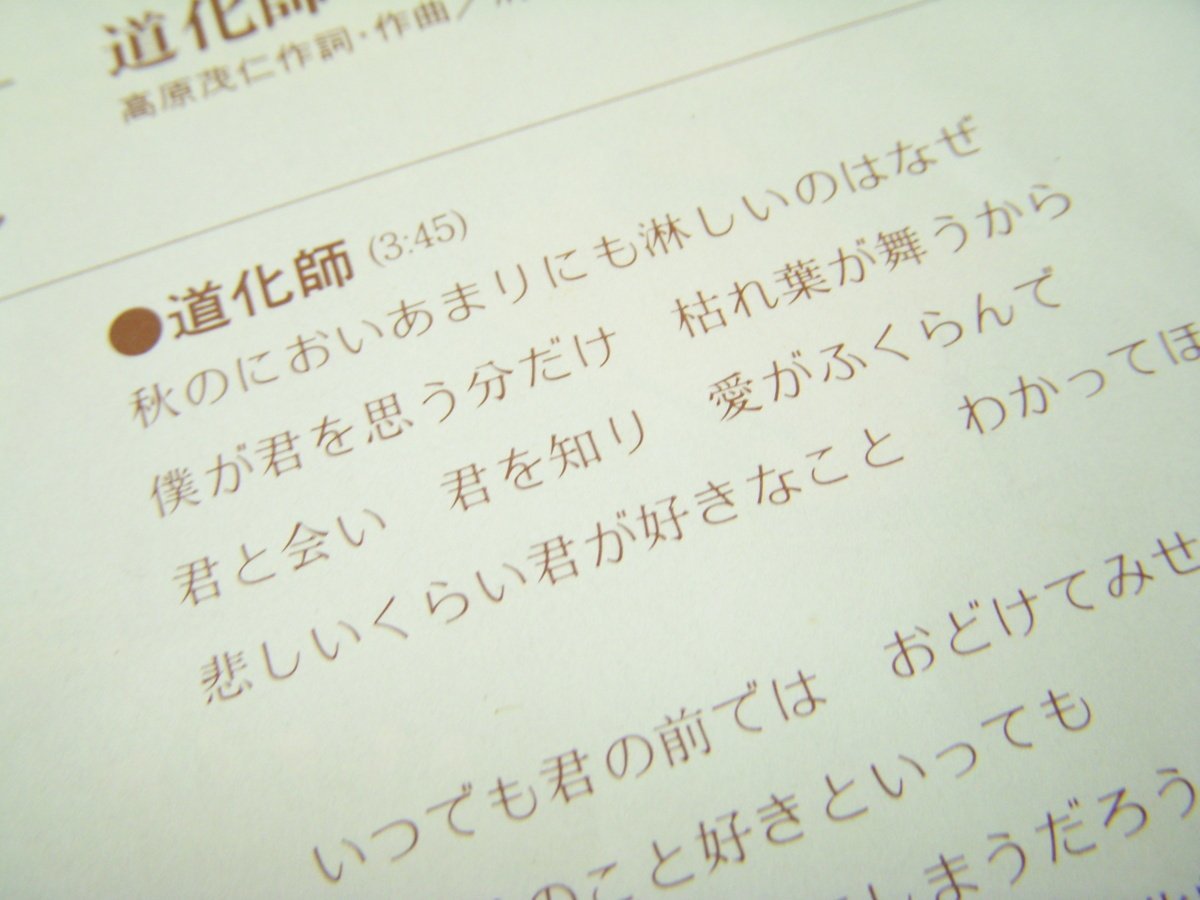 道化師
高原茂仁作詞・作曲／
●道化師 (3:45)
秋のにおいあまりにも淋しいのはなぜ
僕が君を思う分だけ　枯れ葉が舞うから
君と会い　君を知り　愛がふくらんで
悲しいくらい君が好きなこと　わかってほ
いつでも君の前では　おどけてみせ
のこと好きといっても
しまうだろう